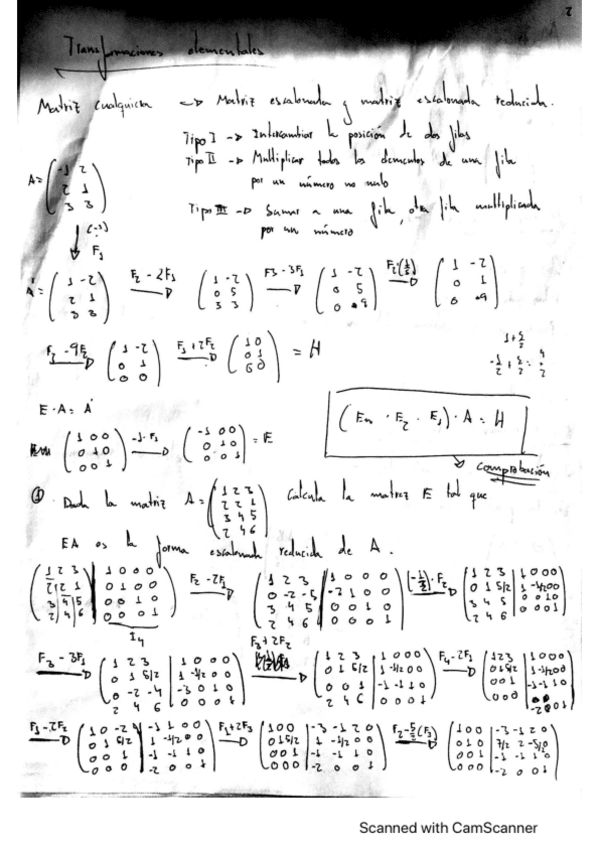 2
Transformaciones elementales
Matriz cualquiera <-> Matriz escalonada y matriz escalonada reducida.
Tipo I -> Intercambiar la posición de dos filas
Tipo II -> Multiplicar todos los elementos de una fila
por un número no nulo
A = (-1 2; 2 1; 3 3)
Tipo III -> Sumar a una fila, otra fila multiplicada
por un número
(-1) F1
A' = (1 -2; 2 1; 3 3) F2 - 2F1 -> (1 -2; 0 5; 3 3) F3 - 3F1 -> (1 -2; 0 5; 0 9) F2·(1/5) -> (1 -2; 0 1; 0 9)
F3 - 9F2 -> (1 -2; 0 1; 0 0) F1 + 2F2 -> (1 0; 0 1; 0 0) = H
E · A = A'
(En · E2 · E1) · A = H
(1 0 0; 0 1 0; 0 0 1) -1·F1 -> (-1 0 0; 0 1 0; 0 0 1) = E
-> comprobación
① Dada la matriz A = (1 2 3; 2 2 1; 3 4 5; 2 4 6) Calcula la matriz E tal que
EA es la forma escalonada reducida de A.
(1 2 3 | 1 0 0 0; 2 2 1 | 0 1 0 0; 3 4 5 | 0 0 1 0; 2 4 6 | 0 0 0 1) F2 - 2F1 -> (1 2 3 | 1 0 0 0; 0 -2 -5 | -2 1 0 0; 3 4 5 | 0 0 1 0; 2 4 6 | 0 0 0 1) (-1/2)·F2 -> (1 2 3 | 1 0 0 0; 0 1 5/2 | 1 -1/2 0 0; 3 4 5 | 0 0 1 0; 2 4 6 | 0 0 0 1)
I4
F3 - 3F1 -> (1 2 3 | 1 0 0 0; 0 1 5/2 | 1 -1/2 0 0; 0 -2 -4 | -3 0 1 0; 2 4 6 | 0 0 0 1) F3 + 2F2 -> (1 2 3 | 1 0 0 0; 0 1 5/2 | 1 -1/2 0 0; 0 0 1 | -1 -1 1 0; 2 4 6 | 0 0 0 1) F4 - 2F1 -> (1 2 3 | 1 0 0 0; 0 1 5/2 | 1 -1/2 0 0; 0 0 1 | -1 -1 1 0; 0 0 0 | -2 0 0 1)
F1 - 2F2 -> (1 0 -2 | -1 1 0 0; 0 1 5/2 | 1 -1/2 0 0; 0 0 1 | -1 -1 1 0; 0 0 0 | -2 0 0 1) F1 + 2F3 -> (1 0 0 | -3 -1 2 0; 0 1 5/2 | 1 -1/2 0 0; 0 0 1 | -1 -1 1 0; 0 0 0 | -2 0 0 1) F2 - 5/2 (F3) -> (1 0 0 | -3 -1 2 0; 0 1 0 | 7/2 2 -5/2 0; 0 0 1 | -1 -1 1 0; 0 0 0 | -2 0 0 1)
Scanned with CamScanner